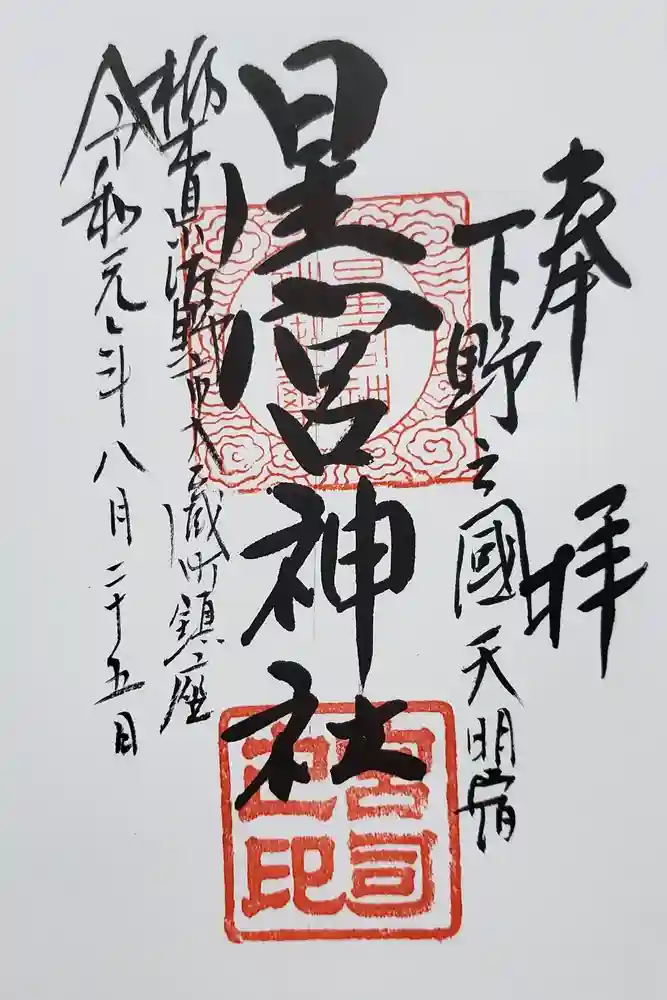 奉拝
下野之國天明宿
星宮神社
栃木県佐野市大蔵町鎮座
令和元年八月二十五日
宮司
之印